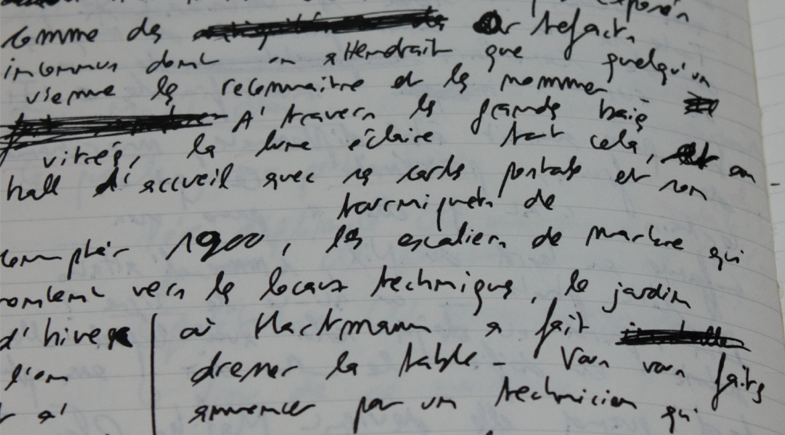 exposés
comme des artefacts
inconnus dont on attendrait que quelqu'un
vienne les reconnaître et les nommer
A travers les grandes baies
vitrées, la lune éclaire tout cela, un
hall d'accueil avec ses cartes postales et son
tourniquet de
1900, les escaliers de marbre qui
vers les locaux techniques, le jardin
d'hiver où Hartmann a fait
l'on dresser la table - Vous vous faites
annoncer par un technicien qui